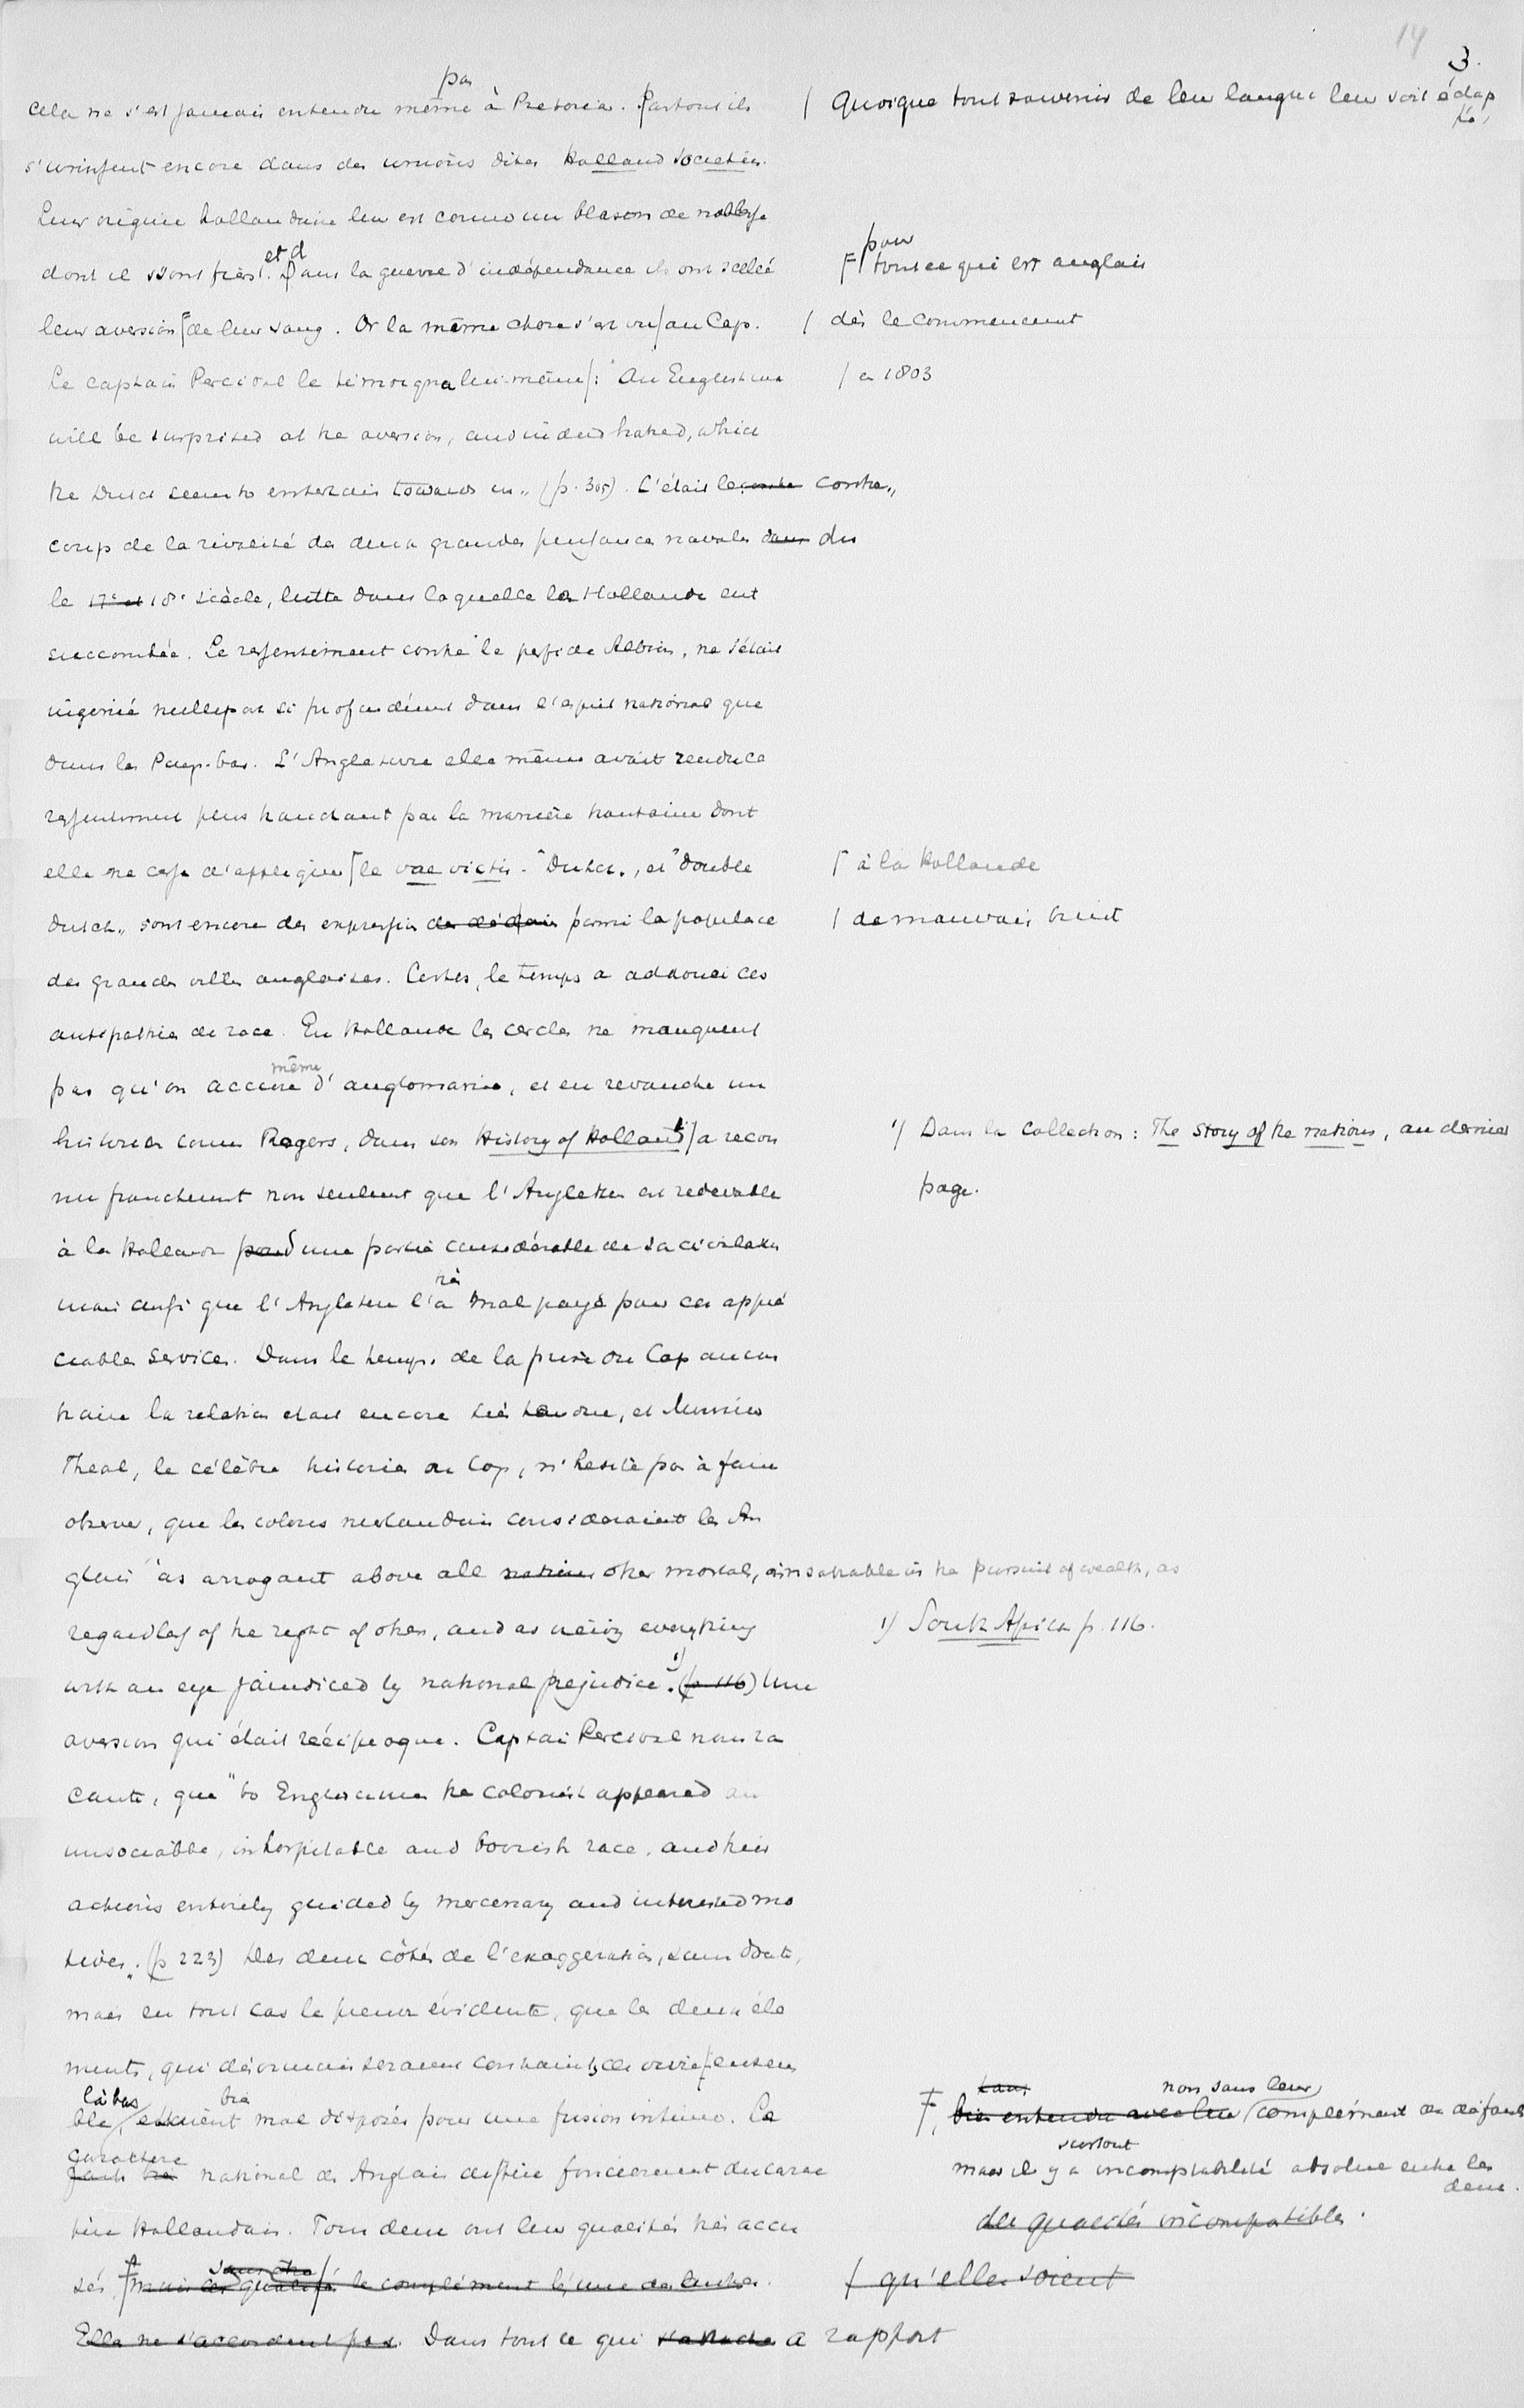 14
3.
pas
Cela ne s'est jamais entendu même à Pretoria. Partout ils
/ Quoique tout souvenir de leur langue leur soit échap
pé,
s'unissent encore dans des unions dites Holland Societies.
Leur origine hollandaise leur est comme un blason de noblesse
et d
dont ils sont fiers. Dans la guerre d'indépendance ils ont scellé
pour
F/ tout ce qui est anglais
leur aversion de leur sang. Or la même chose s'est vu / au Cap.
/ dès le commencement
Le captain Percival le témoigna lui-même /: "An Englishman
/ en 1803
will be surprised at the aversion, and indeed hatred, which
the Dutch seem to entertain towards us" (p. 305). C'était le contre contre,,
coup de la rivalité des deux grandes puissances navales dans du
le 17e et 18e siècle, lutte dans laquelle la Hollande eut
succombée. Le ressentiment contre "le perfide Albion, ne s'était
ingénié nullepart si profondément dans l'esprit national que
dans les Pays-bas. L'Angleterre elle même avait rendu ce
ressentiment plus tranchant par la manière hautaine dont
elle ne cesse d'appliquer [ le vae victis. "Dutch", et "double
[ à la Hollande
dutch" sont encore des expressions de dédain parmi la populace
/ de mauvais bruit
des grandes villes anglaises. Certes, le temps a adouci ces
antipathies de race. En Hollande les cercles ne manquent
même
pas qu'on accuse d'anglomanie, et en revanche un
historien comme Rogers, dans son History of Holland 1) a recon
1) Dans la collection: The Story of the nations, au dernier
page.
nu franchement non seulement que l'Angleterre est redevable
à la Hollande pour d'une partie considérable de sa civilisation
très
mais aussi que l'Angleterre l'a mal payé pour ces appré
ciables services. Dans le temps de la prise du Cap au con
traire la relation était encore très tendue, et Monsieur
Theal, le célèbre historien du Cap, n'hesite pas à faire
observer, que les colons neerlandais considéraient les An
glais "as arrogant above all nations other mortals, as insatiable in the pursuit of wealth, as
regardless of the right of others, and as viewing everything
1) South Africa p. 116.
with an eye jaundiced by national prejudice". 1) (p 116) Une
aversion qui était réciproque. Captain Percival nous ra
conte, que "to Englishmen the colonist appeared an
unsociable, inhospitable and boorish race, and their
actions entirely guided by mercenary and interested mo
tives". (p 223) Des deux côtés de l'exaggeration, sans doute,
mais en tout cas la preuve évidente, que les deux élé
ments, qui désormais seraient contraints de vivre ensem
làbas bien
ble, étaient mal disposés pour une fusion intime. Le
caractère
national des Anglais diffère foncièrement du carac
tère Hollandais. Tous deux ont leur qualités très accu
sans
non sans leur
F, bien entendu avec leur complément de défauts
surtout
mais il y a incomptabilité absolue entre les
deux.
des qualités incompatibles.
sans être
sés. F mais ces qualités le complément l'une de l'autre.
/ qu'elles soient
Elles ne s'accordent pas. Dans tout ce qui a rapport